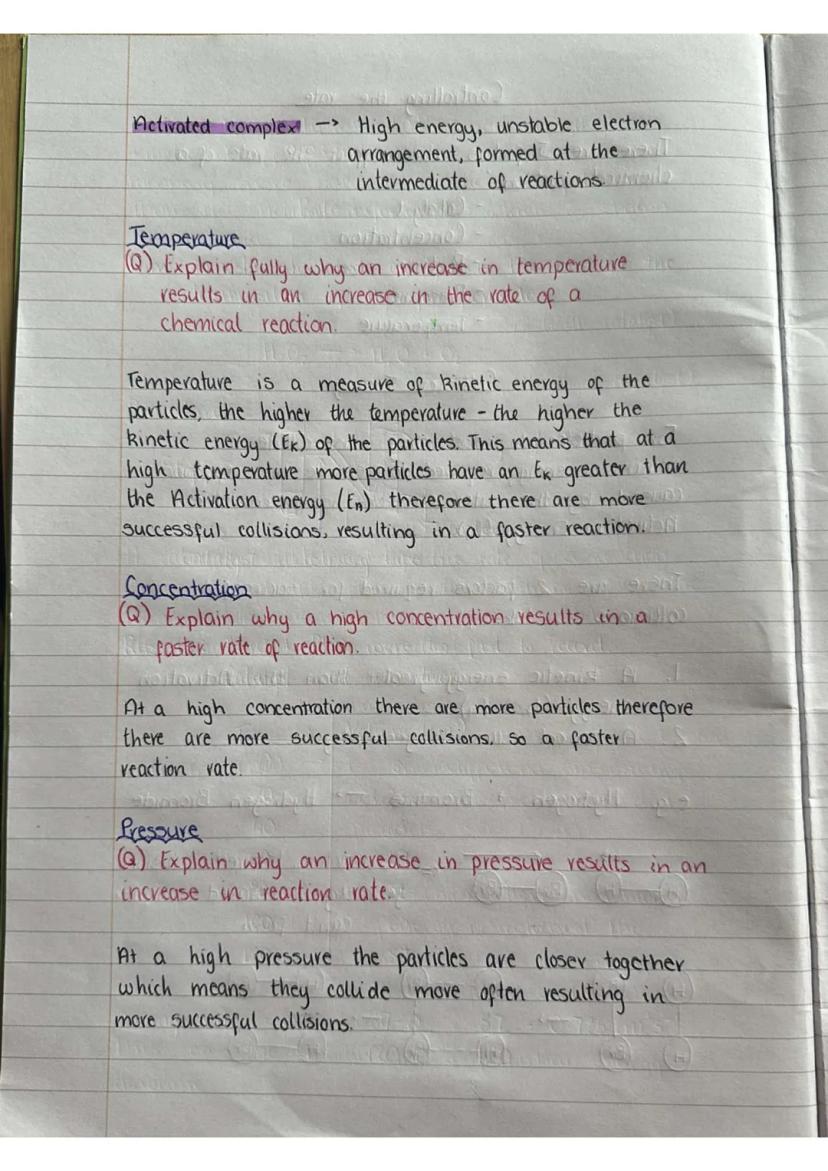 Activated complex → High energy, unstable electron
arrangement, formed at the
intermediate of reactions
Temperature
(Q) Explain fully why an increase in temperature
results in an increase in the rate of a
chemical reaction.
Temperature is a measure of kinetic energy of the
particles, the higher the temperature - the higher the
kinetic energy (EK) of the particles. This means that at a
high temperature more particles have an EK greater than
the Activation energy (EA) therefore there are more
successful collisions, resulting in a faster reaction.
Concentration
(Q) Explain why a high concentration results in a
faster rate of reaction.
At a high concentration there are more particles therefore
there are more successful collisions, so a faster
reaction rate.
Pressure
(Q) Explain why an increase in pressure results in an
increase in reaction rate.
At a high pressure the particles are closer together
which means they collide more often resulting in
more successful collisions.